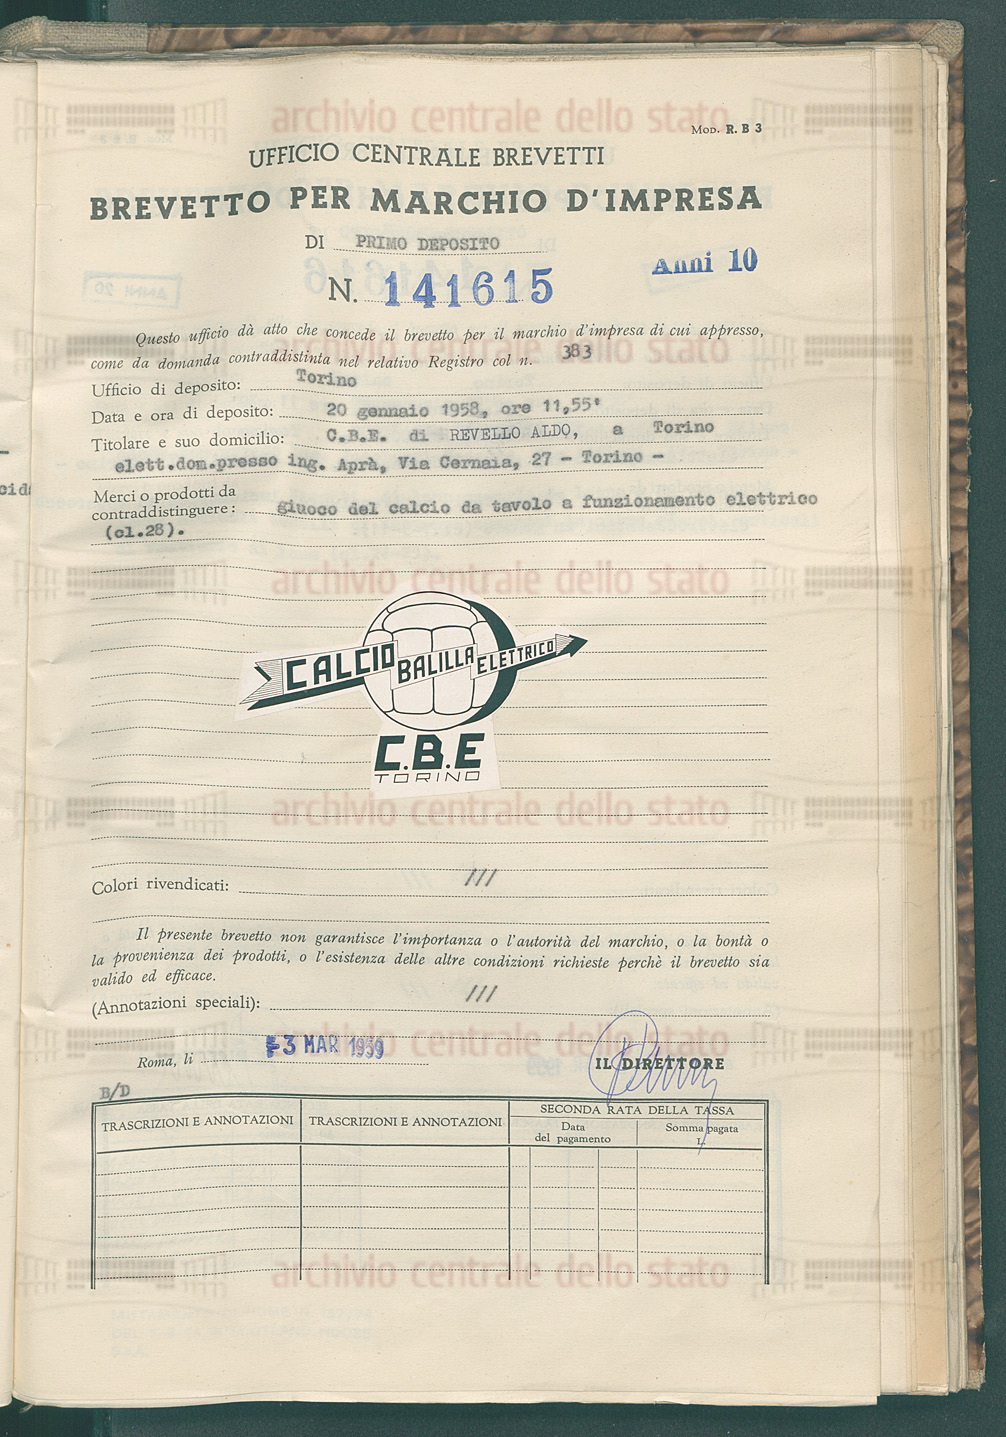 archivio centrale dello stato
MOD. R. B 3
UFFICIO CENTRALE BREVETTI
BREVETTO PER MARCHIO D'IMPRESA
DI PRIMO DEPOSITO
Anni 10
N. 141615
Questo ufficio dà atto che concede il brevetto per il marchio d'impresa di cui appresso,
archivio centrale dello stato
come da domanda contraddistinta nel relativo Registro col n. 383
Ufficio di deposito: Torino
Data e ora di deposito: 20 gennaio 1958, ore 11,55'
Titolare e suo domicilio: C.B.E. di REVELLO ALDO, a Torino
elett.dom.presso ing. Aprà, Via Cernaia, 27 - Torino -
Merci o prodotti da
contraddistinguere: giuoco del calcio da tavolo a funzionamento elettrico
(cl.28).
archivio centrale dello stato
CALCIO BALILLA ELETTRICO
C.B.E
TORINO
archivio centrale dello stato
Colori rivendicati: ///
Il presente brevetto non garantisce l'importanza o l'autorità del marchio, o la bontà o
la provenienza dei prodotti, o l'esistenza delle altre condizioni richieste perchè il brevetto sia
valido ed efficace.
(Annotazioni speciali): ///
archivio centrale dello stato
Roma, li 3 MAR 1959
IL DIRETTORE
B/D
TRASCRIZIONI E ANNOTAZIONI
TRASCRIZIONI E ANNOTAZIONI
SECONDA RATA DELLA TASSA
Data
del pagamento
Somma pagata
L.
archivio centrale dello stato